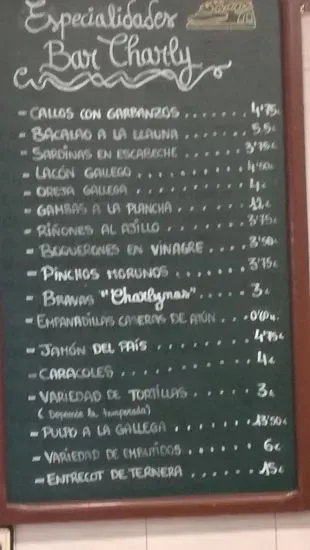 Especialidades
Bar Charly
- CALLOS CON GARBANZOS ...... 4'75€
- BACALAO A LA LLAUNA ...... 5'5€
- SARDINAS EN ESCABECHE ...... 3'75€
- LACÓN GALLEGO ...... 4'50€
- OREJA GALLEGA ...... 4€
- GAMBAS A LA PLANCHA ...... 12€
- RIÑONES AL AJILLO ...... 3'75€
- BOQUERONES EN VINAGRE ...... 3'50€
- PINCHOS MORUNOS ...... 3'75€
- BRAVAS "Charlynas" ...... 3€
- EMPANADILLAS CASERAS DE ATÚN ...
- JAMÓN DEL PAÍS ...... 4'75€
- CARACOLES ...... 4€
- VARIEDAD DE TORTILLAS ...... 3€
( Depende la temporada)
- PULPO A LA GALLEGA ...... 13'50€
- VARIEDAD DE EMBUTIDOS ...... 6€
- ENTRECOT DE TERNERA ...... 15€